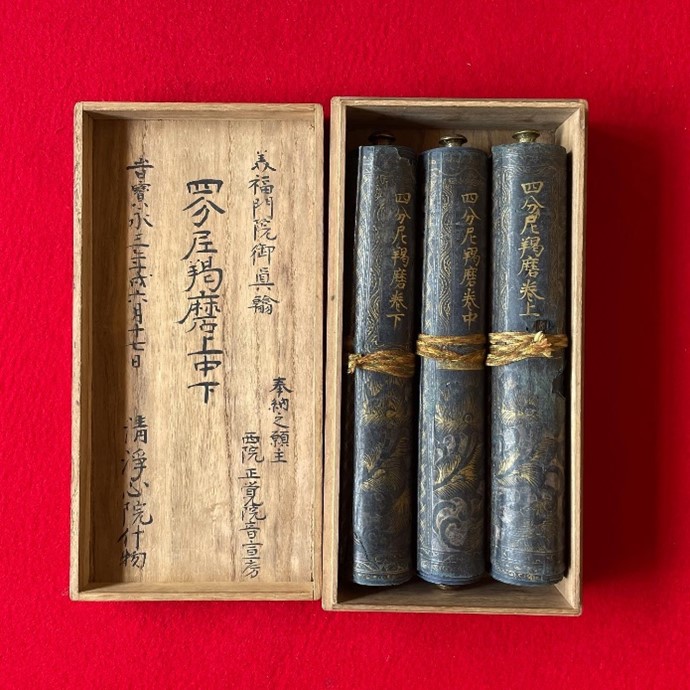 美福門院御真翰
四分尼羯磨上中下
奉納之願主
西院正覚院音宣房
宝永三年戌六月十七日
清浄心院什物
四分尼羯磨巻上
四分尼羯磨巻中
四分尼羯磨巻下